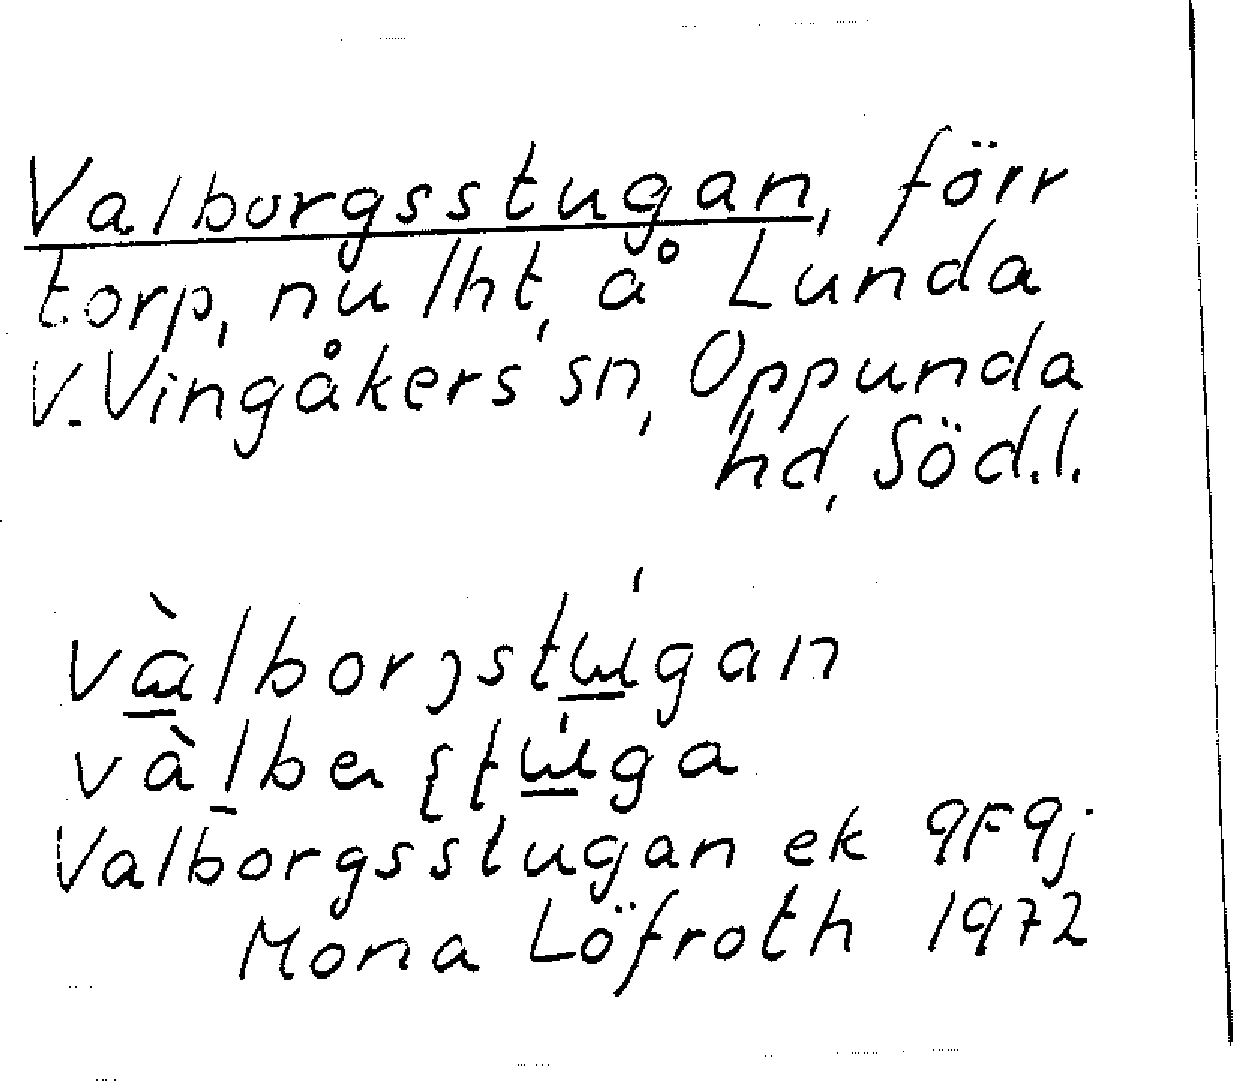 Valborgsstugan, förr
torp, nu lht, å Lunda
V. Vingåkers sn, Oppunda
hd, Söd.l.
Valborgsstugan ek 9F9j
Mona Löfroth 1972